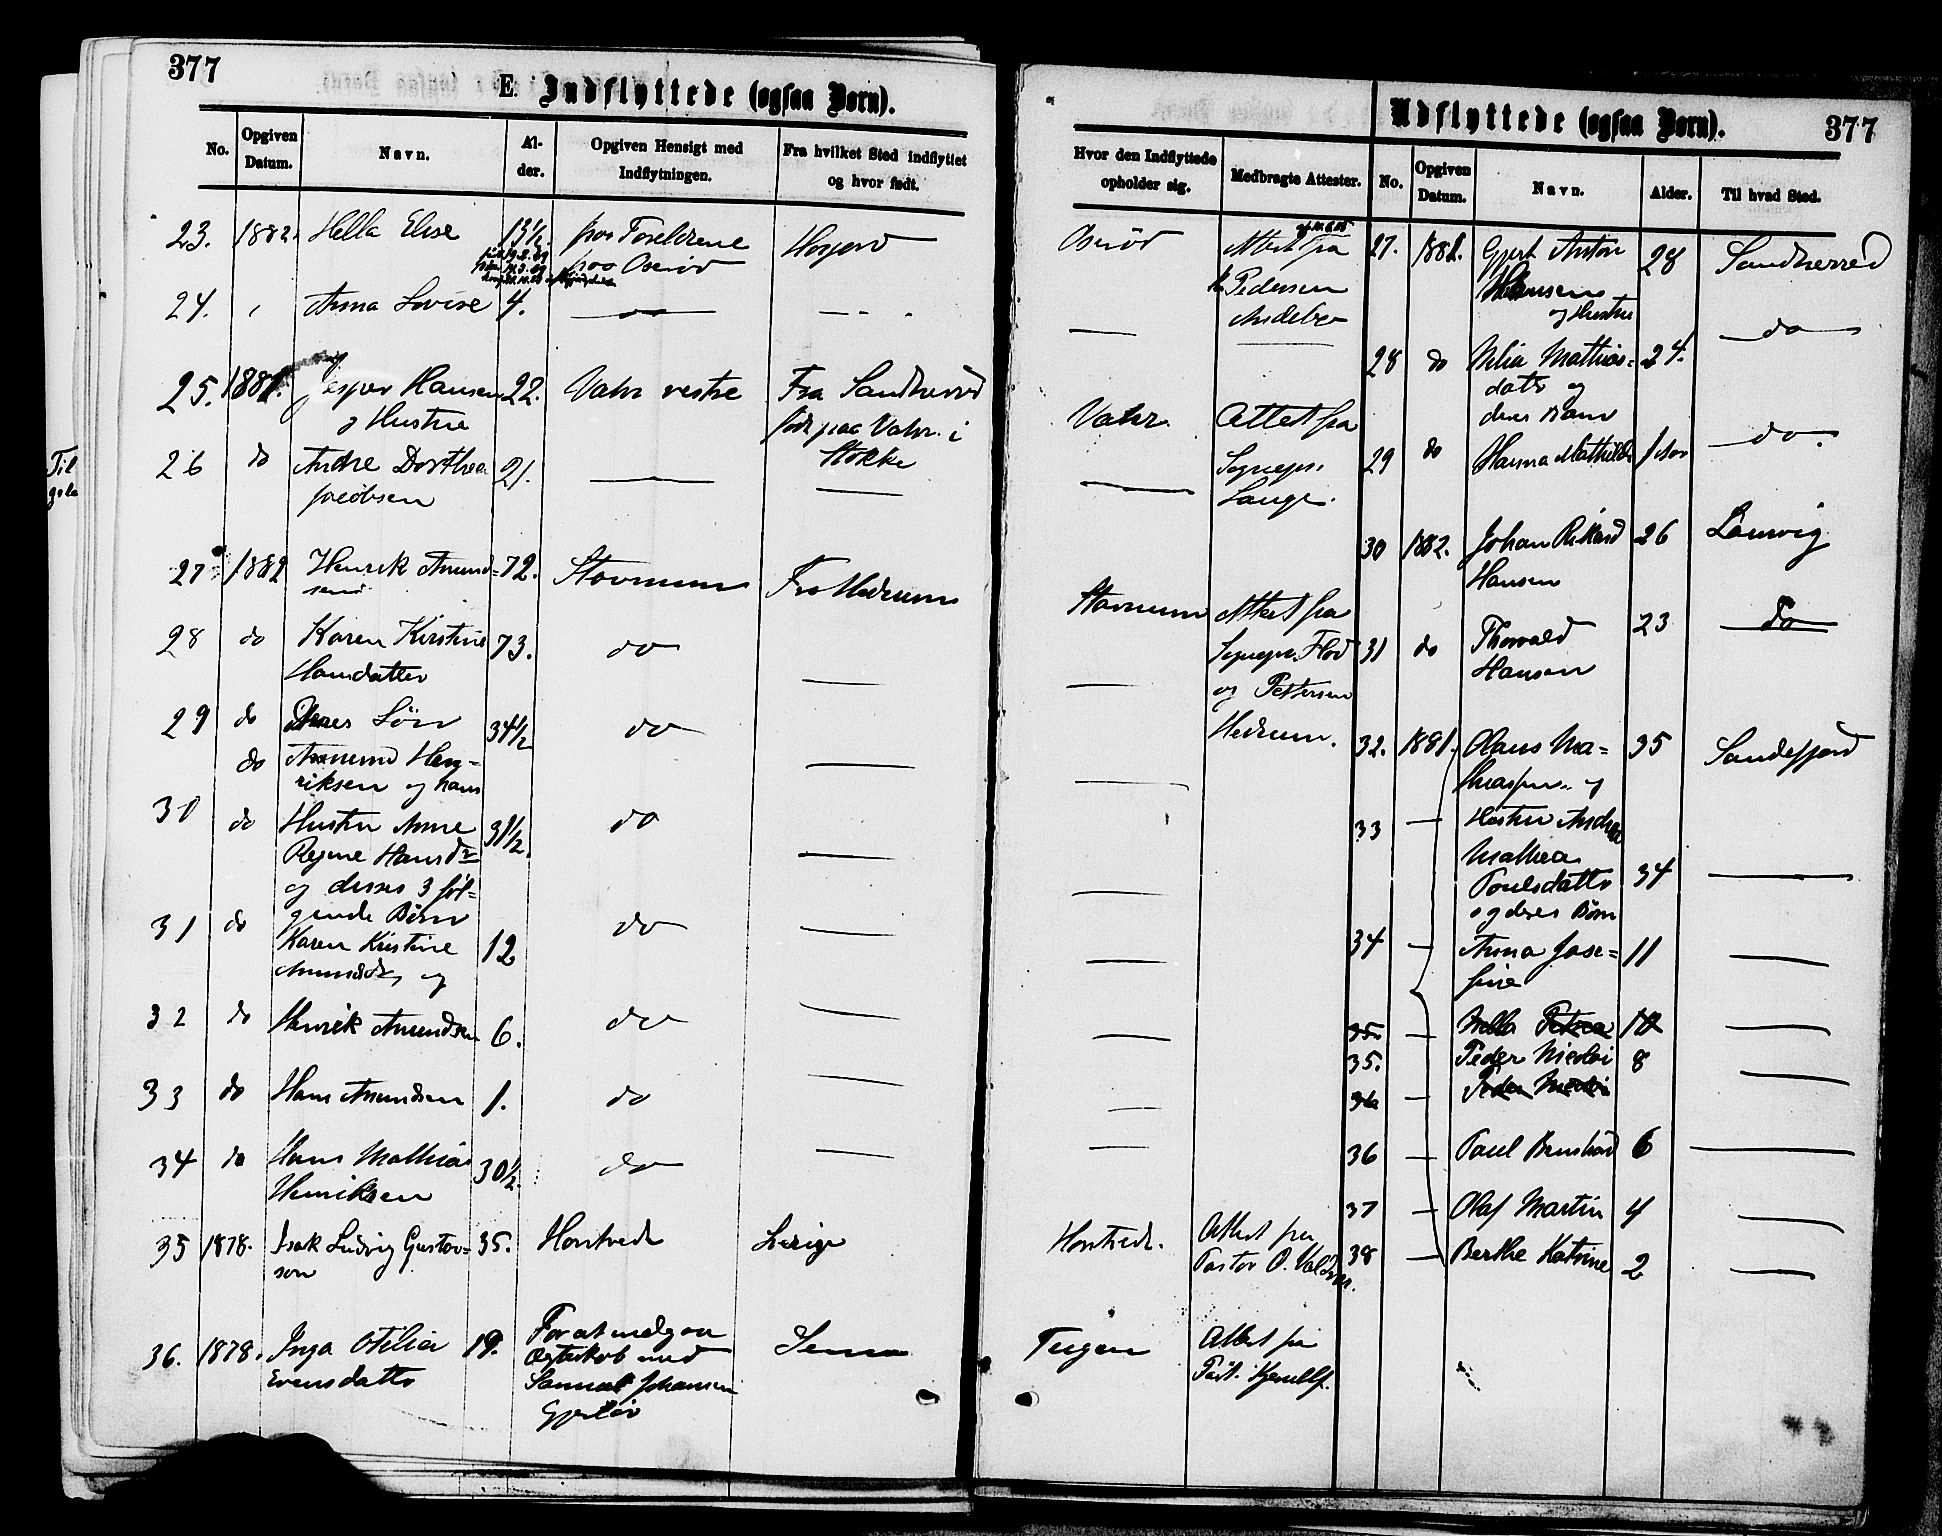 377
E. Indflyttede (ogsaa Børn).
No. Opgiven Datum. Navn. Alder. Opgiven Hensigt med Indflytningen. Fra hvilket Sted indflyttet og hvor født. Hvor den Indflyttede opholder sig. Medbragte Attester.
23. 1882. Hella Elise 13½. Osnød Attest fra
Pedersen
24. Anna Lovise 4. Andebo
25. 1881. Jesper Hansen 22. Valør vestre Fra Sandherred Attest fra
og Hustru i
26 do Andre Dorthea 21. Stokke Sognepr.
Lange.
27 1882 Henrik Amund= 72. Stavnum Fra Hedrum Stavnum Attest fra
sen
28 do Karen Kirstine 73. do Sognepr. Flod
Hansdatter og Pettersen
29 do Deres Søn 34½ do Hedrum.
do Amund Hen=
riksen og hans
30 do Hustru Anne 31½. do
Regine Hansdr
og disses 3 føl=
gende Børn
31 do Karen Kristine 12 do
og
32 do Henrik Amundsen 6. do
33 do Hans Amundsen 1. do
34 do Hans Mathias 30½. do
Henriksen
35 1878. Isak Ludvig Gustav= 35. Attest fra
son Pastor
36. 1878. Inga Otilia 19. For at indgaa Attest fra
Evensdattr Ægteskab med
Samuel Johansen
Udflyttede (ogsaa Børn).
377
No. Opgiven Datum. Navn. Alder. Til hvad Sted.
27. 1881. Gjert Anton 28 Sandherred
Hansen
og Hustru
28 do Mathias= 24. do
dattr og
deres Barn
29 do Hanna Mathilde 1 do.
30 1882. Johan Rikard 26 Laurvig
Hansen
31 do Thorvald 23 do
Hansen
32. 1881. Olaus Ma= 35 Sandefjord
thiassen og
33 — Hustru Andrea
Mathea
Poulsdattr 34
og deres Børn
34 — Anna Jose= 11
fine
35. — Petrea 10
35. Peder Nicolai 8
36 — Peder Nicolai
36 — Paul 6
37 — Olaf Martin 4
38 — Berthe Katrine 2
Til